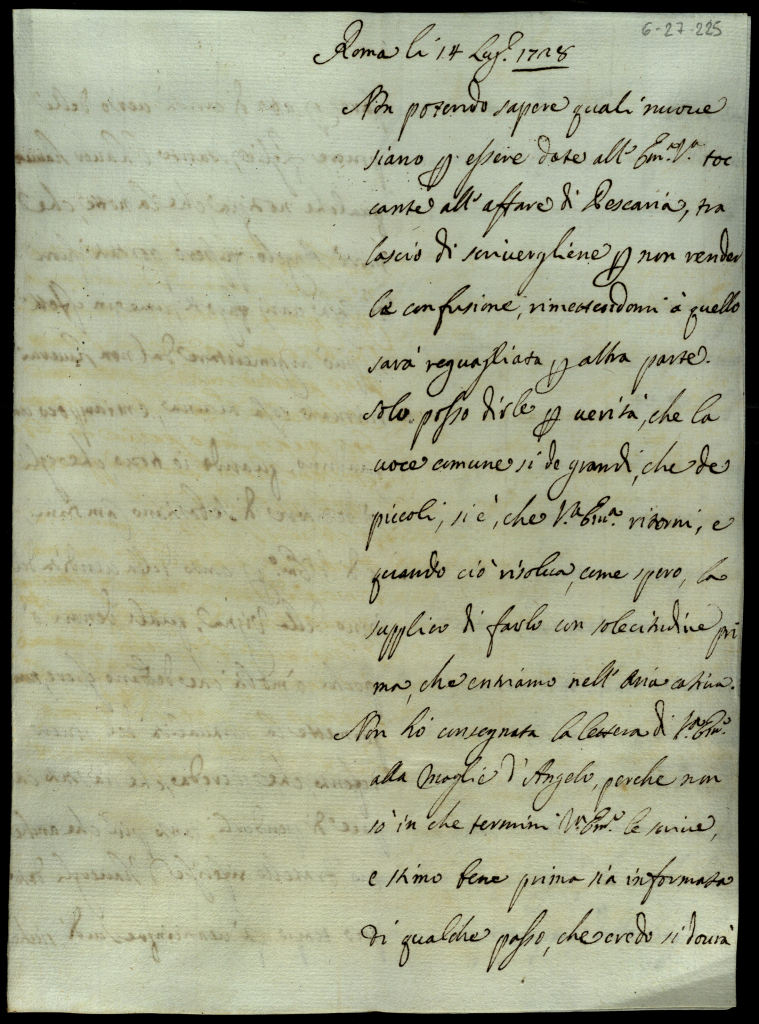 6-27-225
Roma li 14 Lug.º 1728
Non potendo sapere quali nuove
siano p essere date all' Em.ª V.ª toc
cante all' affare di Pescaria, tra
lascio di scrivergliene p non render
la confusione, rimettendomi à quello
sarà reguagliata p altra parte.
Solo posso dirle p verità, che la
voce comune si de grandi, che de
piccoli, si è, che V.ª Em.ª ritorni, e
quando ciò risolva, come spero, la
supplico di farlo con solecitudine pri
ma, che entriamo nell' Aria cativa.
Non hò consegnata la lettera di V.ª Em.ª
alla Moglie d'Angelo, perche non
sò in che termini V.ª Em.ª le scrive,
e stimo bene prima sia informata
di qualche passo, che credo si dovrà